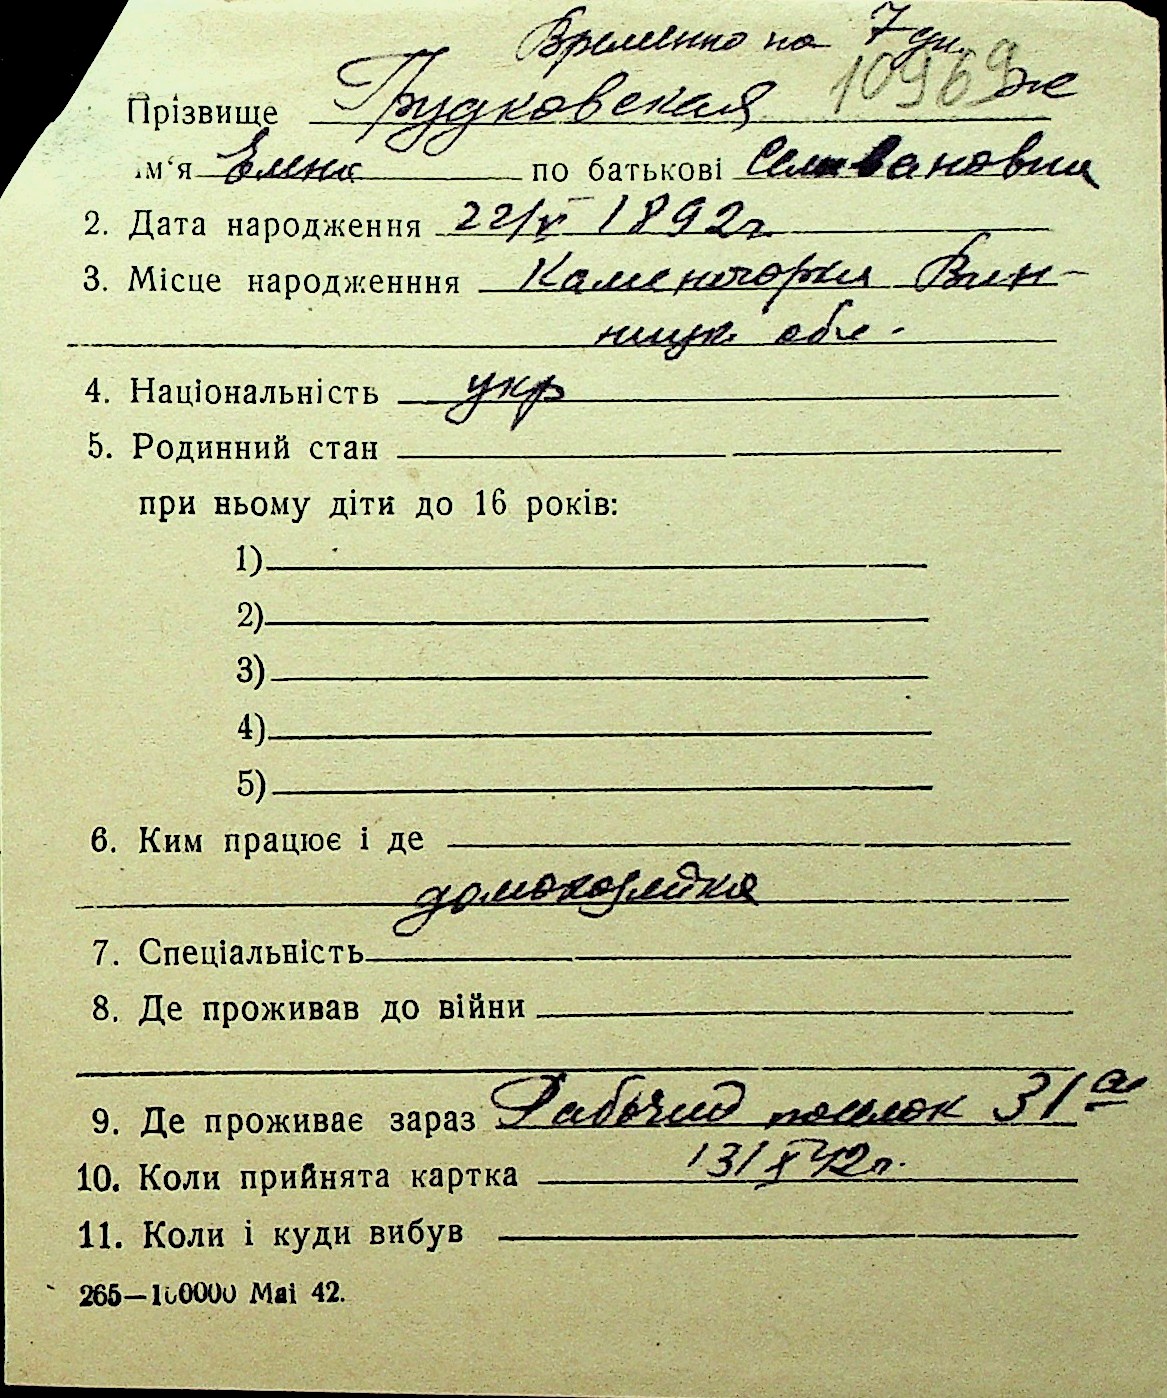 Временно на 7 дн.
10969 ж
Прізвище Грудковская
ім‘я Елена по батькові Селивановна
2. Дата народження 22/V 1892г.
3. Місце народженння Каменогорка Вин-
ницк. обл.
4. Національність укр
5. Родинний стан
при ньому діти до 16 років:
1)
2)
3)
4)
5)
6. Ким працює і де
домохозяйка
7. Спеціальність
8. Де проживав до війни
9. Де проживає зараз Рабочий поселок 31а
10. Коли прийнята картка 13/X 42г.
11. Коли і куди вибув
265—100000 Mai 42.